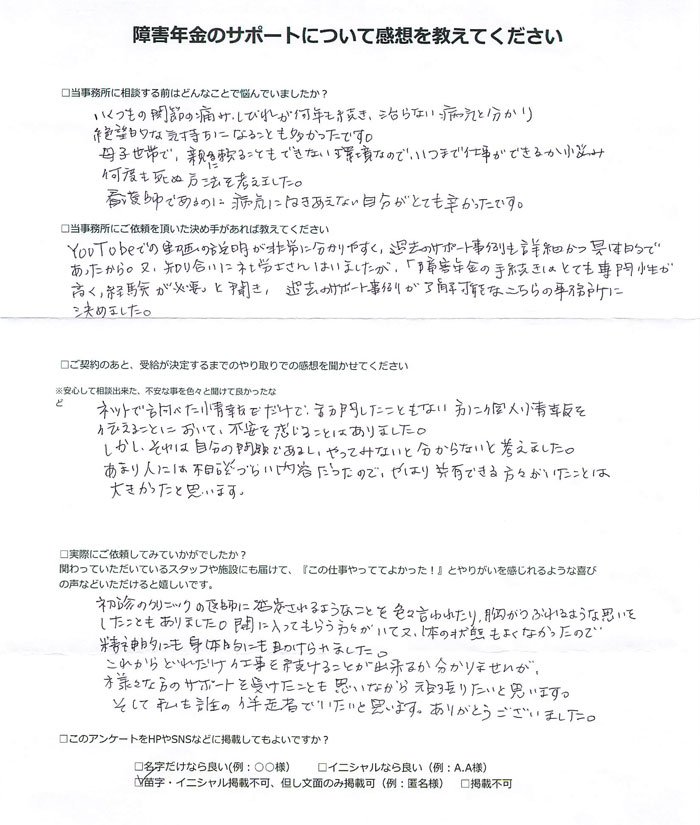 障害年金のサポートについて感想を教えてください
□当事務所に相談する前はどんなことで悩んでいましたか？
いくつもの関節の痛み、しびれが何年も続き、治らない病気と分かり
絶望的な気持ちになることも多かったです。
母子世帯で、親に頼ることもできない環境なので、いつまで仕事ができるか悩み
何度も死ぬ方法を考えました。
看護師であるのに病気に向きあえない自分がとても辛かったです。
□当事務所にご依頼を頂いた決め手があれば教えてください
YouTobeでの動画の説明が非常に分かりやすく、過去のサポート事例も詳細かつ具体的で
あったから。又、知り合いに社労士さんはいましたが、「障害年金の手続きはとても専門性が
高く、経験が必要」と聞き、過去のサポート事例が了解可能なこちらの事務所に
決めました。
□ご契約のあと、受給が決定するまでのやり取りでの感想を聞かせてください
※安心して相談出来た、不安な事を色々と聞けて良かったな
ど
ネットで調べた情報だけで、訪問したこともない方に個人情報を
伝えることにおいて、不安を感じることはありました。
しかし、それは自分の問題であるし、やってみないと分からないと考えました。
あまり人には相談づらい内容だったので、やはり共有できる方々がいたことは
大きかったと思います。
□実際にご依頼してみていかがでしたか？
関わっていただいているスタッフや施設にも届けて、『この仕事やっててよかった！』とやりがいを感じれるような喜び
の声などいただけると嬉しいです。
初診のクリニックの医師に否定されるようなことを色々言われたり、胸がつぶれるような思いを
したこともありました。間に入ってもらう方々がいて、又、体の状態もよくなかったので
精神的にも身体的にも助けられました。
これからどれだけ仕事を続けることが出来るか分かりませんが、
様々な方のサポートを受けたことも思いながら頑張りたいと思います。
そして私も誰の伴走者でいたいと思います。ありがとうございました。
□このアンケートをHPやSNSなどに掲載してもよいですか？
□名字だけなら良い(例：○○様） □イニシャルなら良い（例：A.A様）
☑苗字・イニシャル掲載不可、但し文面のみ掲載可（例：匿名様） □掲載不可